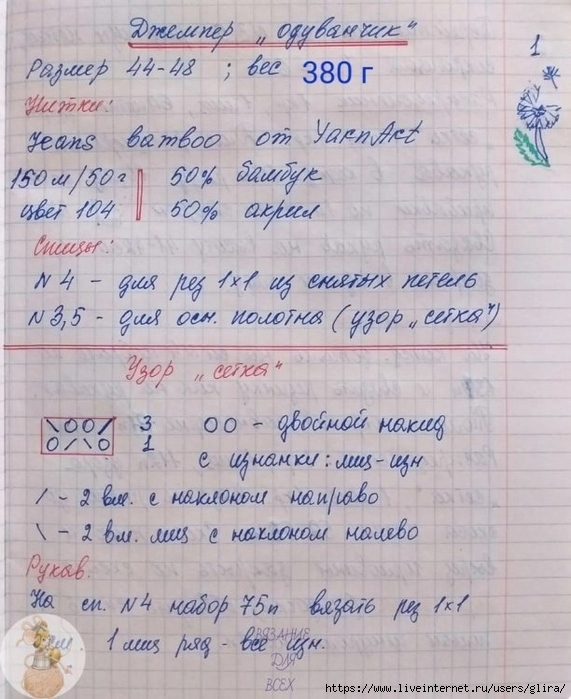 Джемпер „одуванчик"
1
Размер 44-48 ; вес 380 г
Нитки:
Jeans bamboo от YarnArt
150м/50г 50% бамбук
цвет 104 50% акрил
Спицы:
N 4 - для рез 1×1 из снятых петель
N 3,5 - для осн. полотна (узор „сетка")
Узор „сетка"
\OO/ 3 OO - двойной накид
O/\O 1
с изнанки: лиц-изн
/ - 2 вм. с наклоном направо
\ - 2 вм. лиц с наклоном налево
Рукав.
На сп. N4 набор 75п вязать рез 1×1
1 лиц ряд - все изн.
ВЯЗАНИЕ
ДЛЯ
ВСЕХ
https://www.liveinternet.ru/users/glira/